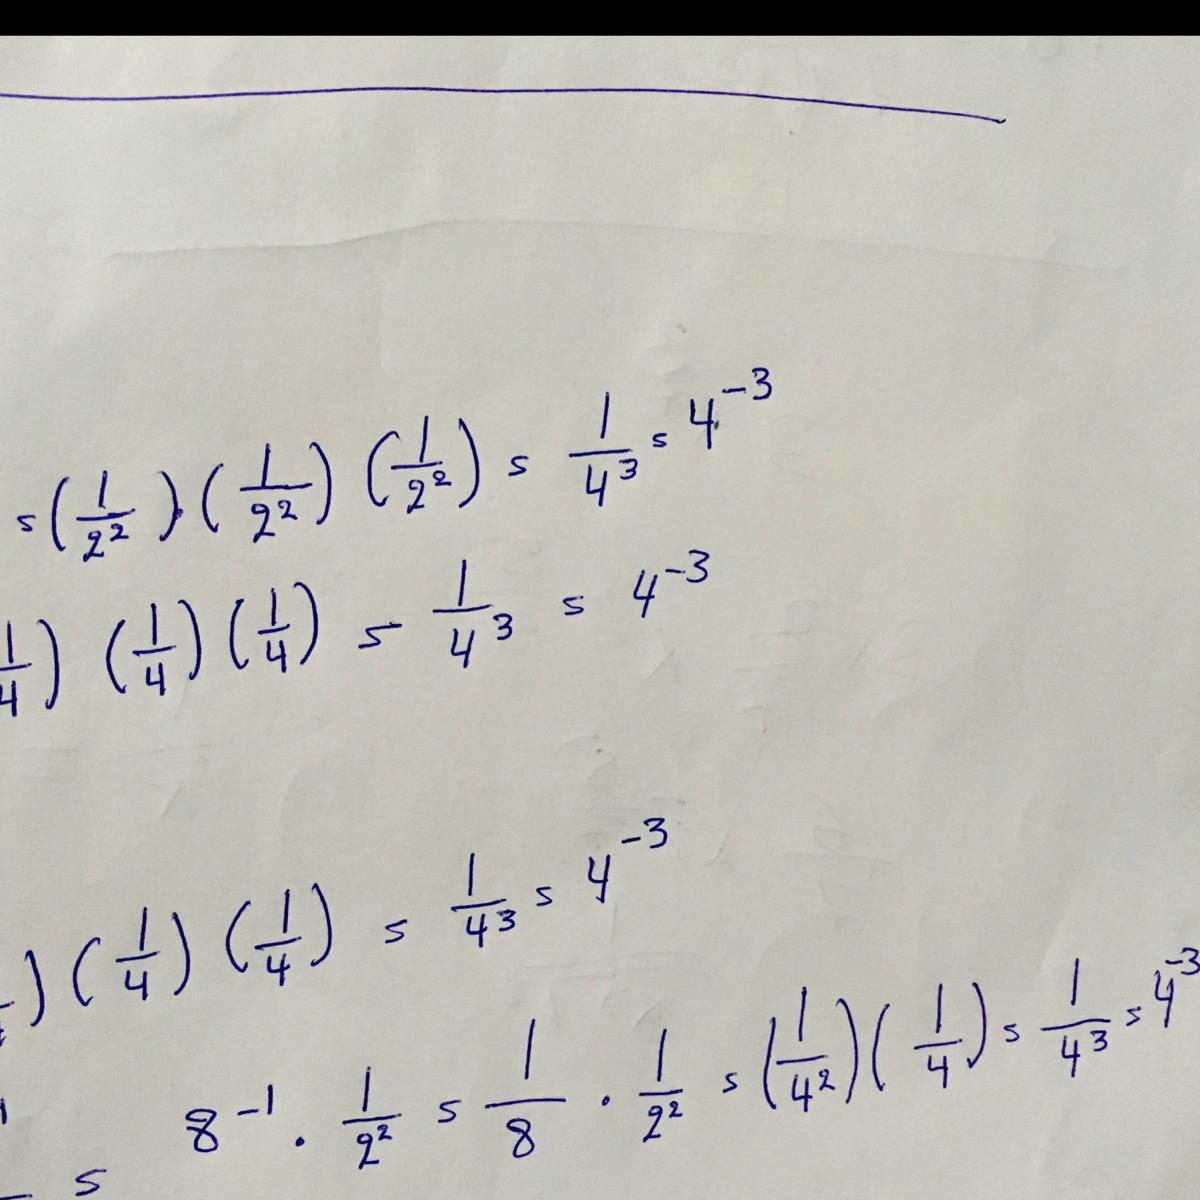 = (1/2²)(1/2²)(1/2²) = 1/4³ = 4⁻³
1/4) (1/4)(1/4) = 1/4³ = 4⁻³
)(1/4)(1/4) = 1/4³ = 4⁻³
8⁻¹ · 1/2² = 1/8 · 1/2² = (1/4²)(1/4) = 1/4³ = 4⁻³
=